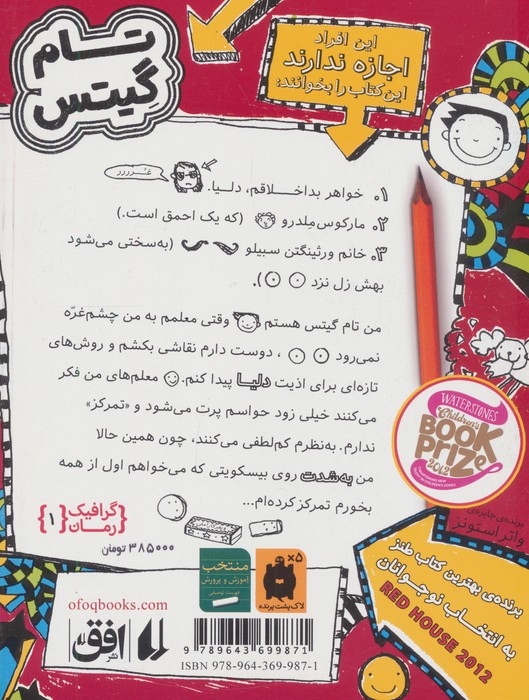 تام
گیتس
این افراد
اجازه ندارند
این کتاب را بخوانند:
غــررررر
۱. خواهر بداخلاقم، دلیا.
۲. مارکوس مِلدرو (که یک احمق است.)
۳. خانم ورثینگتن سبیلو (به‌سختی می‌شود
بهش زل نزد ).
من تام گیتس هستم وقتی معلمم به من چشم‌غرّه
نمی‌رود ، دوست دارم نقاشی بکشم و روش‌های
تازه‌ای برای اذیت دلیا پیدا کنم. معلم‌های من فکر
می‌کنند خیلی زود حواسم پرت می‌شود و «تمرکز»
ندارم. به‌نظرم کم‌لطفی می‌کنند، چون همین حالا
من به‌شدت روی بیسکویتی که می‌خواهم اول از همه
بخورم تمرکز کرده‌ام...
WATERSTONES
Children's
BOOK
PRIZE
2012
برنده‌ی جایزه‌ی
واتراستونز
برنده‌ی بهترین کتاب طنز
به انتخاب نوجوانان
RED HOUSE 2012
گرافیک
رمان
{۱}
۳۸۵۰۰۰ تومان
منتخب
آموزش و پرورش
فهرست توصیفی
×۵
لاک‌پشت پرنده
ofoqbooks.com
نشر افق
9 789643 699871
ISBN 978-964-369-987-1